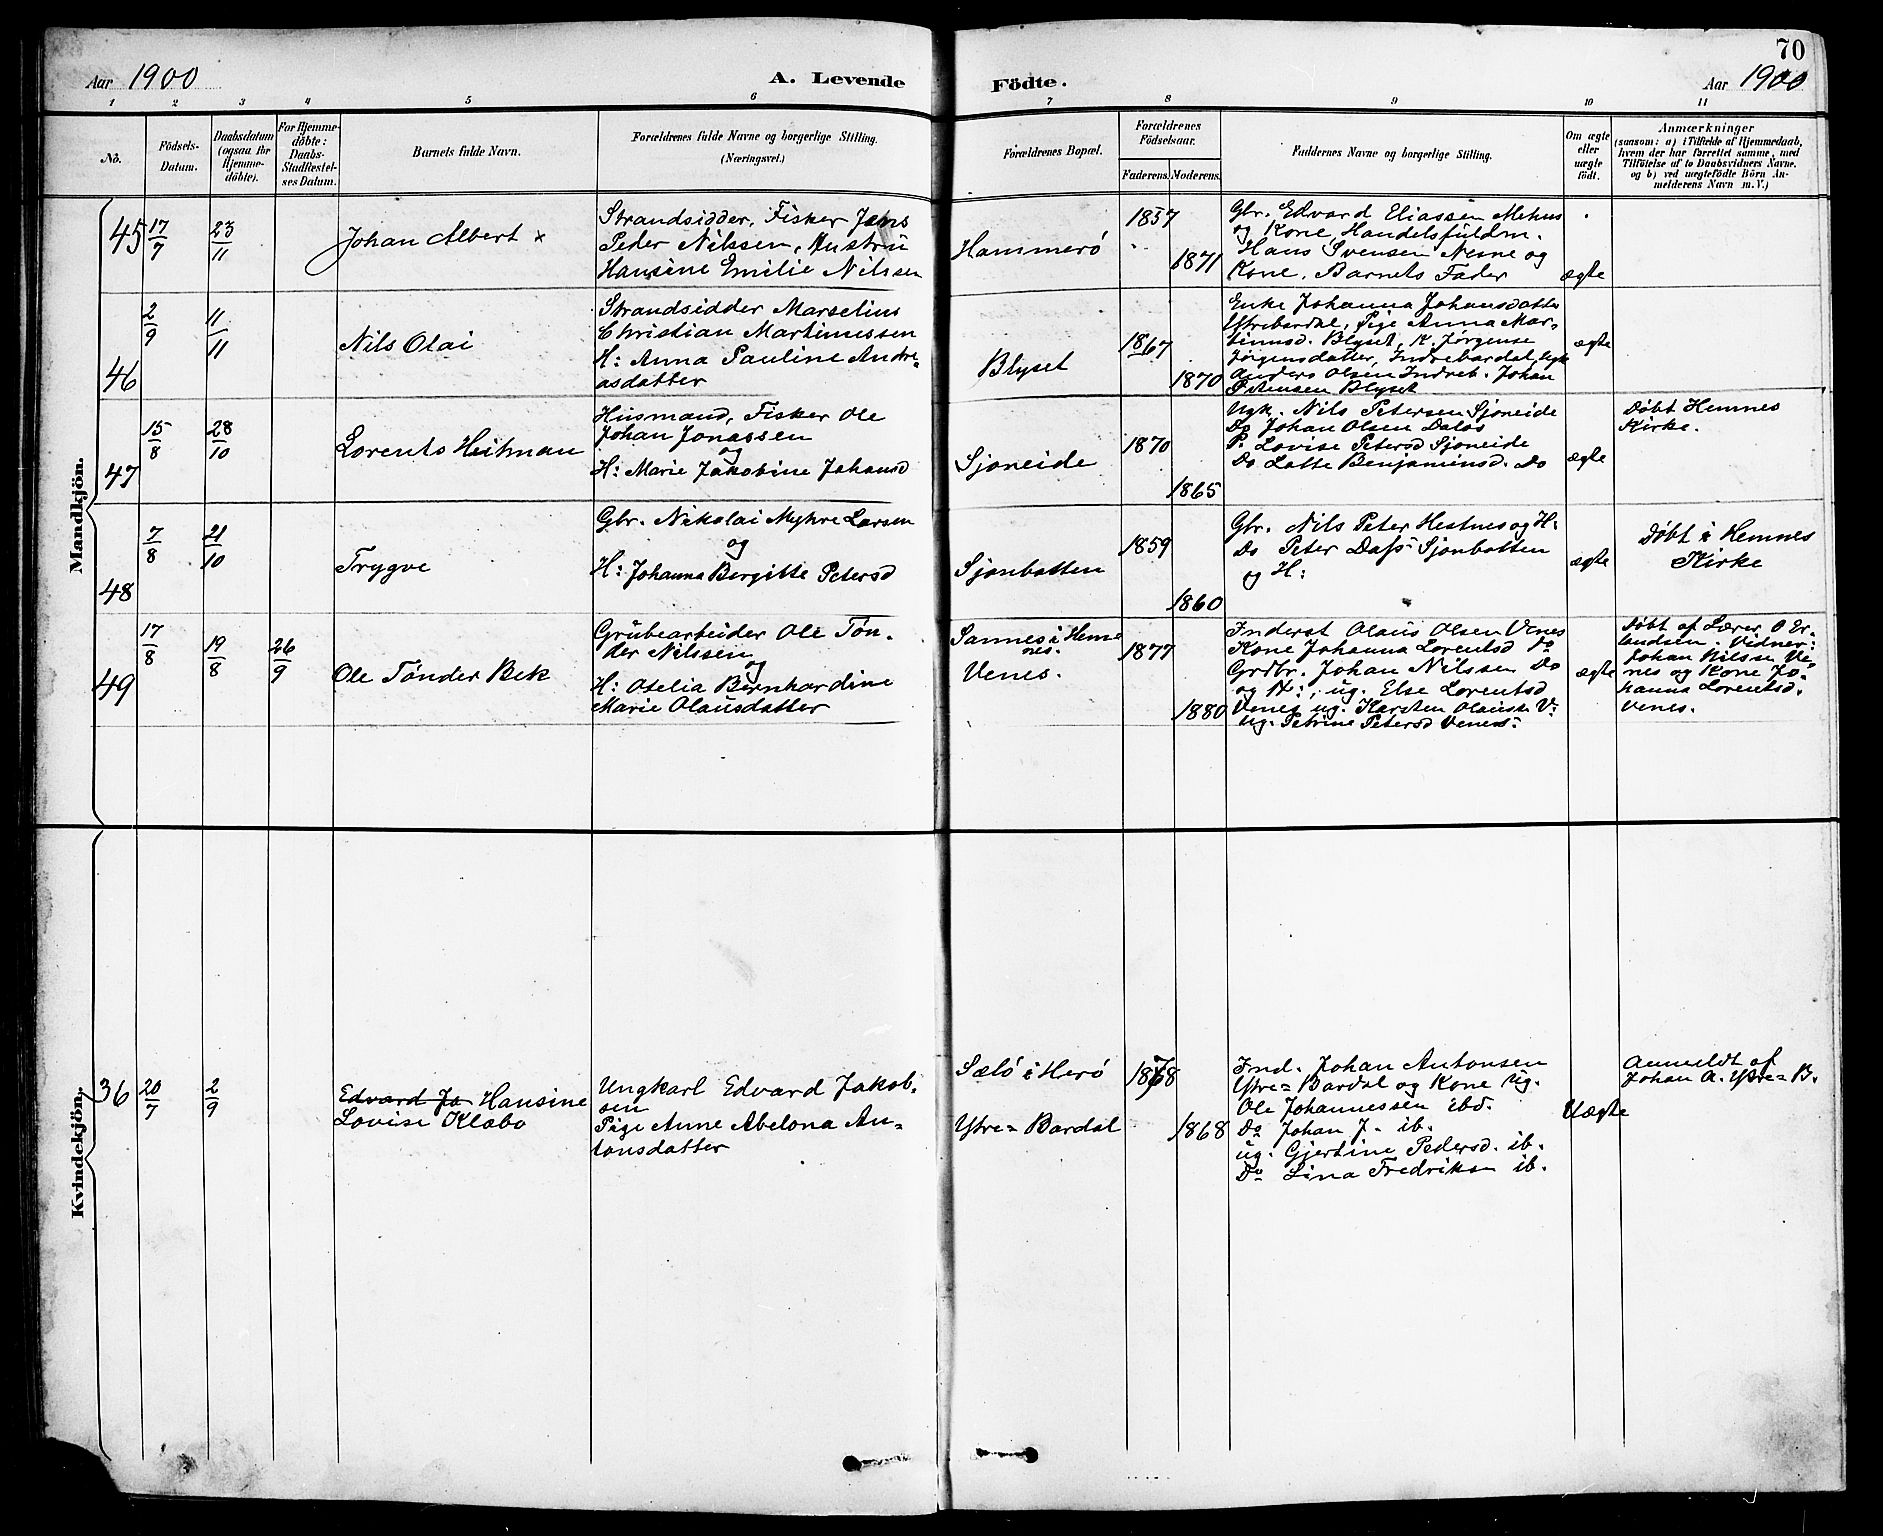 70
Aar 1900
A. Levende
Födte.
Aar 1900
1 2 3 4 5 6 7 8 9 10 11
No.
Födsels-
Datum.
Daabsdatum
(ogsaa for
Hjemme-
döbte).
For Hjemme-
döbte:
Daabs-
Stadfæstel-
ses Datum.
Barnets fulde Navn.
Forældrenes fulde Navne og borgerlige Stilling.
(Næringsvei.)
Forældrenes Bopæl.
Forældrenes
Födselsaar.
Faderens. Moderens.
Faddernes Navne og borgerlige Stilling.
Om ægte
eller
uægte
födt.
Anmærkninger
(saasom: a) i Tilfælde af Hjemmedaab,
hvem der har forrettet samme, med
Tilföielse af to Daabsvidners Navne,
og b) ved uægtefödte Börn An-
melderens Navn m. V.)
Mandkjön.
45
17/7
23/11
Johan Albert x
Strandsidder, Fisker Jens
Peder Nilssen, Hustru
Hansine Emilie Nilssen
Hammerö
1857
1871
Gbr. Edvard Eliassen Mehus
og Kone, Handelsfuldm.
Hans Svensen Nesne og
Kone, Barnets Fader
ægte
46
2/9
11/11
Nils Olai
Strandsidder Marselius
Christian Martinussen
H: Anna Pauline Andre-
asdatter
Blyset
1867
1870
Enke Johanna Johansdatter
Ytrebardal, Pige Anna Mar-
tinusd. Blyset, K. Jørgense
Jørgensdatter, Indrebardal,
Anders Olsen Indreb. Johan
Petersen Blyset
ægte
47
15/8
28/10
Lorents Heitman
Husmand, Fisker Ole
Johan Jonassen
og
H: Marie Jakobine Johansd
Sjoneide
1870
1865
Ugk. Nils Petersen Sjoneide
Do Johan Olsen Dalos
P. Lovise Petersd Sjoneide
Do Lotte Benjaminsd. Do
ægte
Döbt Hemnes
Kirke.
48
7/8
21/10
Trygve
Gbr. Nikolai Myhre Larsen
og
H: Johanna Bergitte Petersd
Sjonbotten
1859
1860
Gbr. Nils Peter Hestnes og H:
Do Peter Dass Sjonbotten
og H:
ægte
Döbt i Hemnes
Kirke
49
17/8
19/8
26/9
Ole Tönder Bek
Grubearbeider Ole Tön-
der Nilssen
og
H: Otelia Bernhardine
Marie Olausdatter
Sannes i Hem-
nes.
Venes.
1877
1880
Inderst Olaus Olsen Venes
Kone Johanna Lorentsd Do
Grdbr. Johan Nilssen Do
og H:, ug. Else Lorentsd
Venes ug. Karsten Olaussen V:
ug. Petrine Petersd Venes:
ægte
Döbt af Lærer O Er-
landsen. Vidner:
Johan Nilssen Ve-
nes og Kone Jo-
hanna Lorentsd.
Venes.
Kvindekjön.
36
20/7
2/9
Edvard Ja Hansine
Lovise Klæbo
Ungkarl Edvard Jakob-
sen
Pige Anne Abelona An-
tonsdatter
Sælö i Herö
Ytre=Bardal
1878
1868
Ind. Johan Antonsen
Ytre=Bardal og Kone Ug.
Ole Johannessen ibd.
Do Johan J. ib.
ug. Gjertine Pedersd. ib.
Do Lina Fredriksen ib.
Uægte
Anmeldt af
Johan A. Ytre=B.